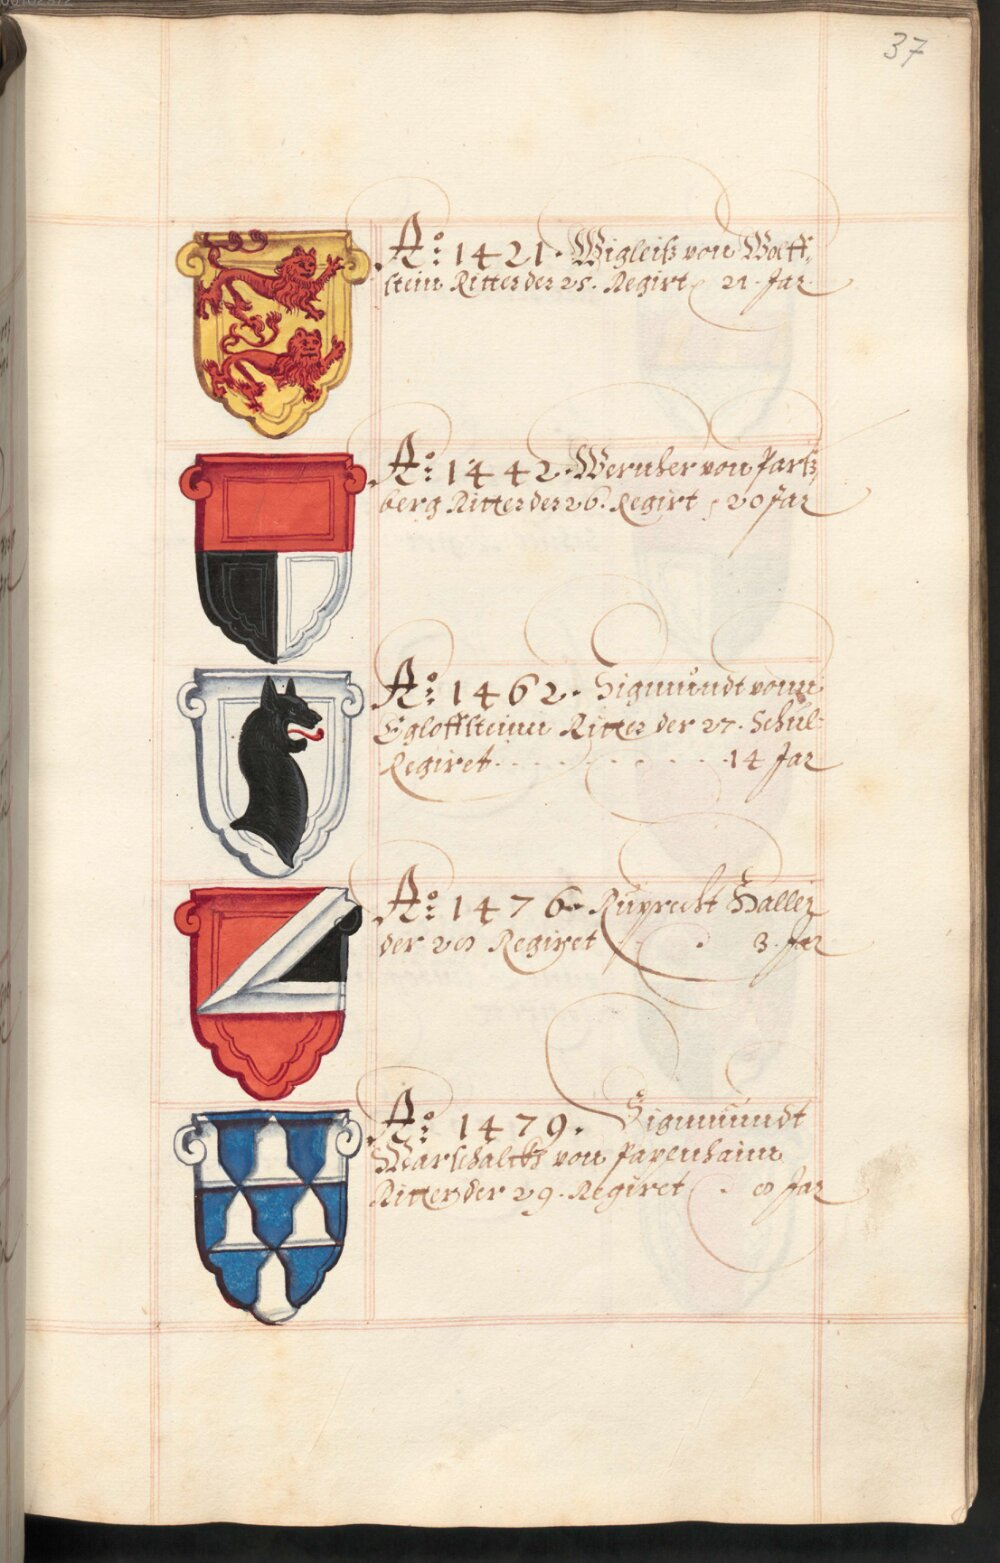 37
Aº: 1421. Wigleiß von Wolff,
stein Ritter der 25. Regirt 21. Jar.
Aº: 1442. Wernher von Parß,
berg Ritter der 26. Regirt 20 Jar
Aº: 1462. Sigmŭndt vonn
Egloffsteinn Ritter der 27. Schŭl-
Regiret. . . . . . . . . . 14 Jar
Aº: 1476. Rŭprecht Haller
der 28 Regiret . . 3. Jar
Aº: 1479. Sigmŭndt
Marschalckh von Papenhaim
Ritter der 29. Regiret . 8 Jar